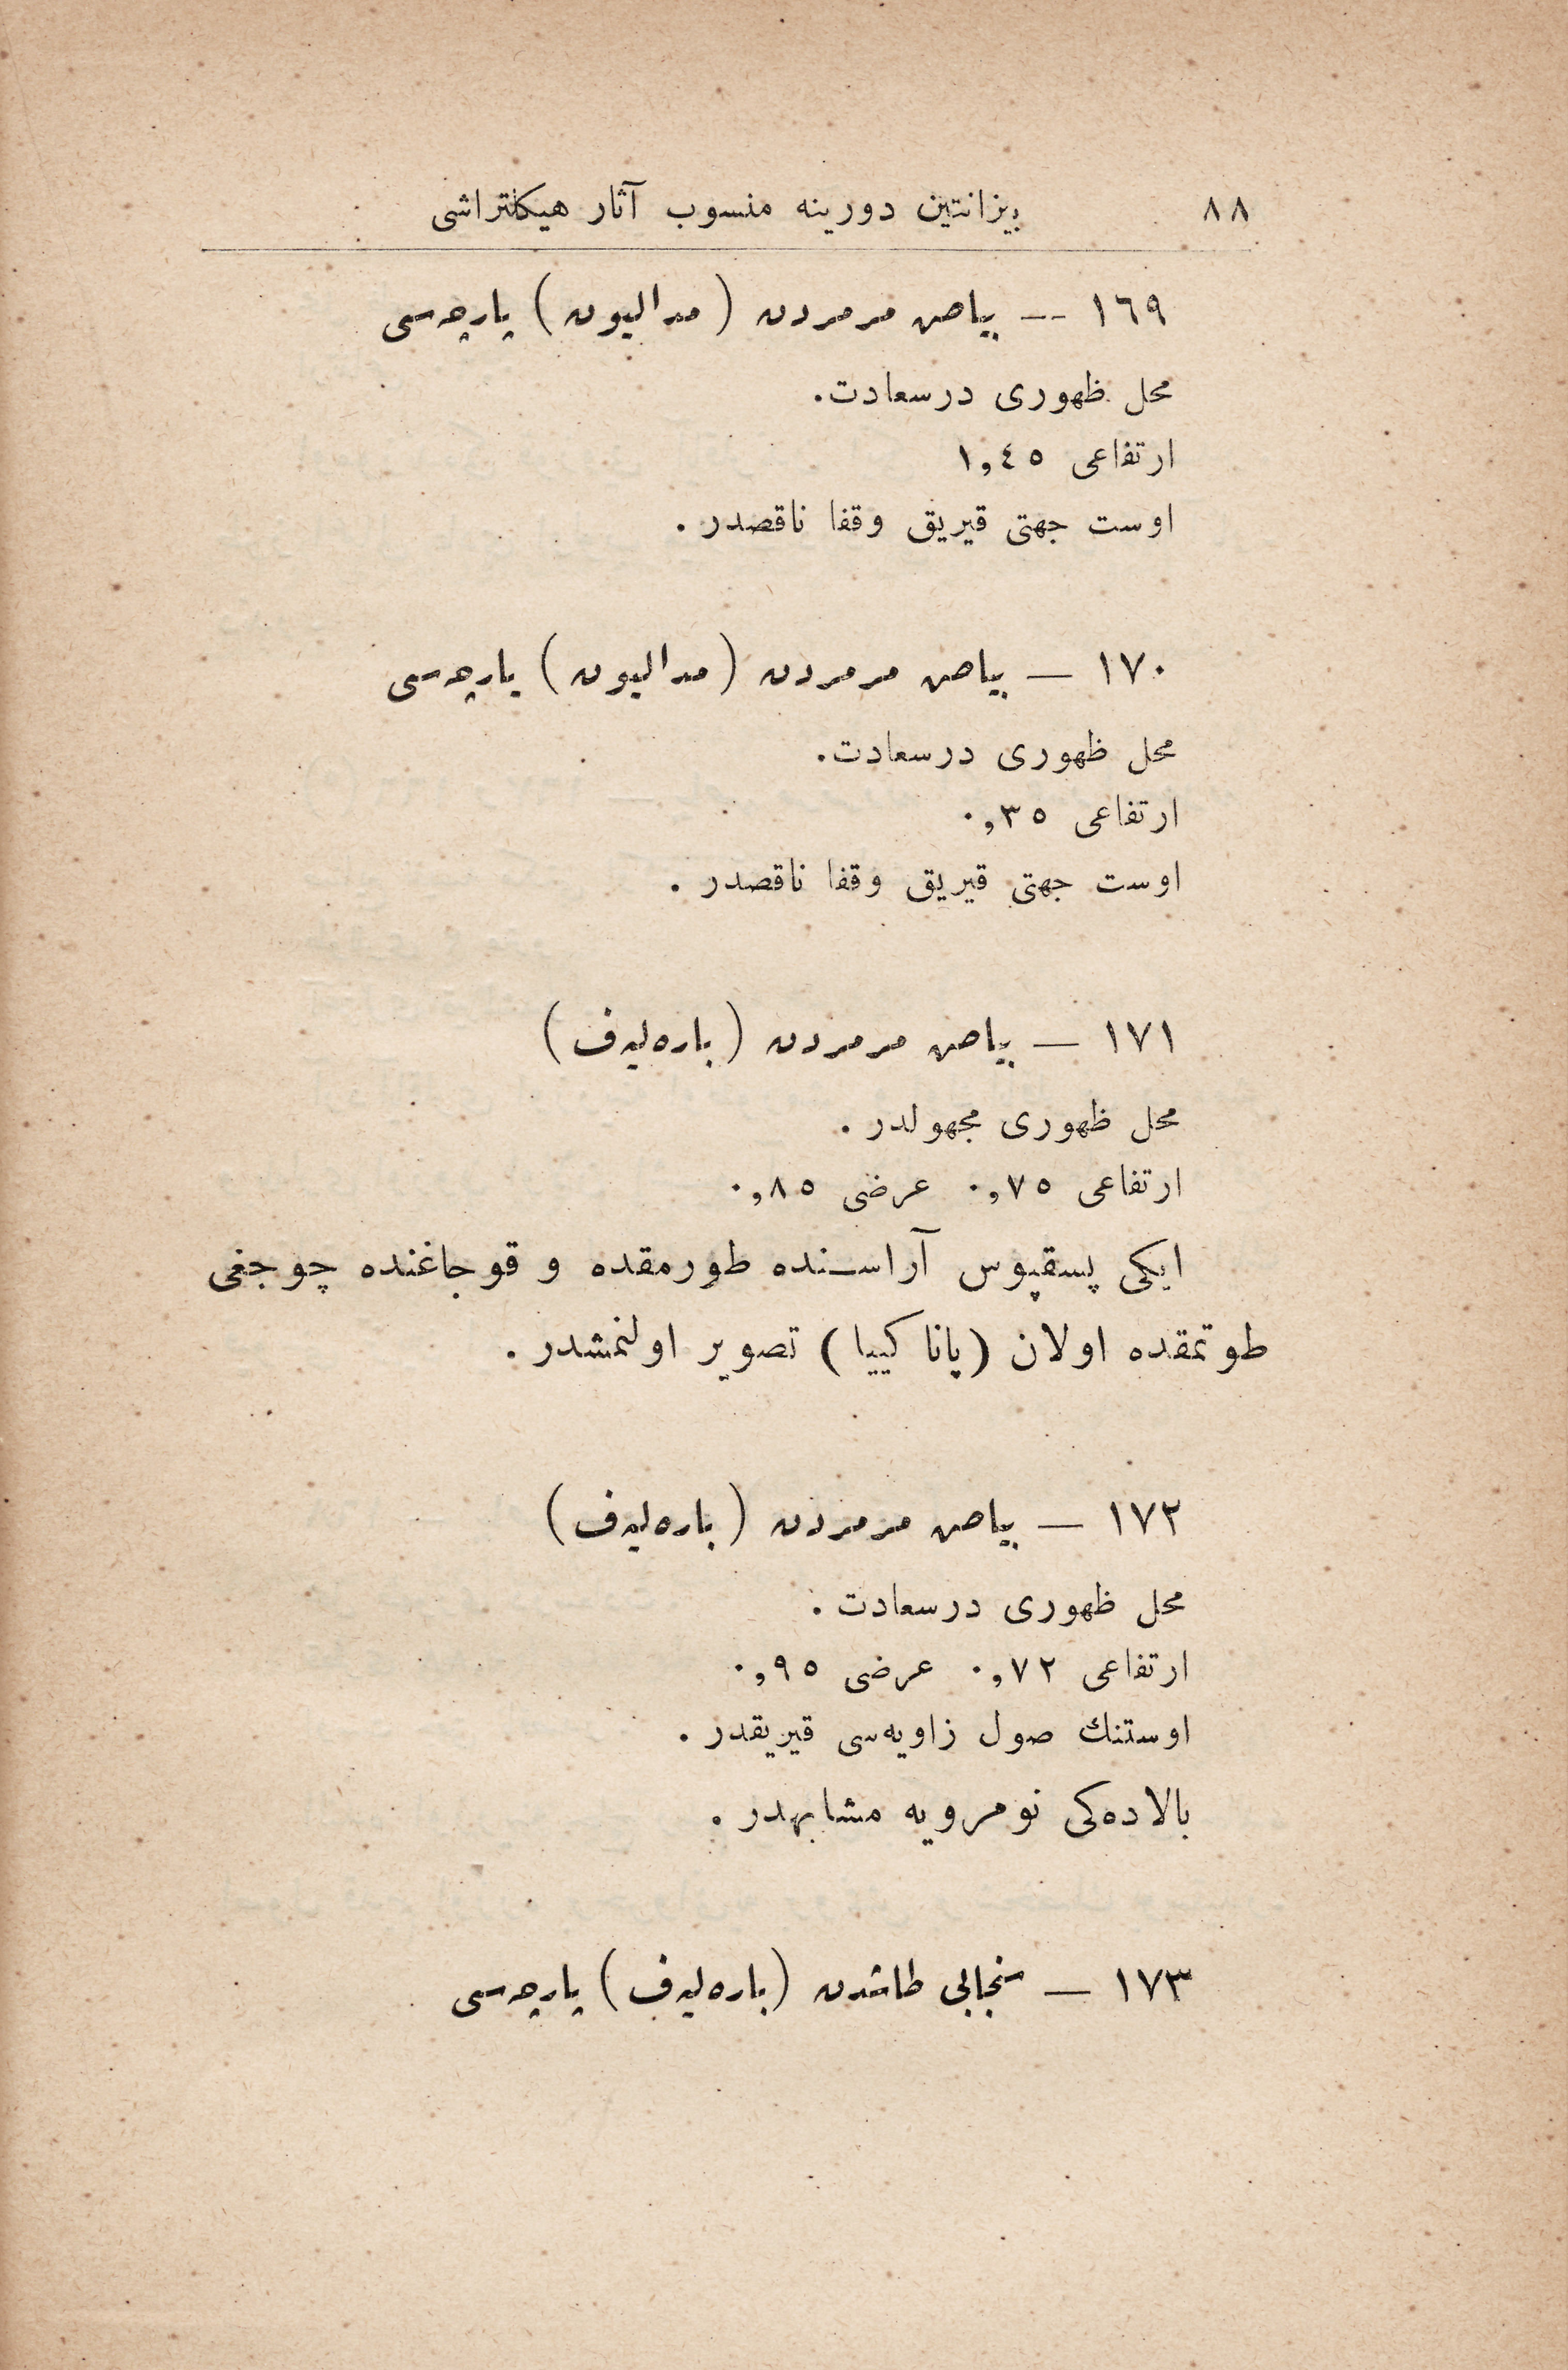 ٨٨ بيزانتين دورينه منسوب آثار هيكلتراشى
١٦٩ — بياض مرمردن (مداليون) پارچه‌سى
محل ظهورى درسعادت.
ارتفاعى ١,٤٥
اوست جهتى قيريق وقفا ناقصدر .
١٧٠ — بياض مرمردن (مداليون) پارچه‌سى
محل ظهورى درسعادت.
ارتفاعى ٠,٣٥
اوست جهتى قيريق وقفا ناقصدر .
١٧١ — بياض مرمردن (باره‌ليه‌ف)
محل ظهورى مجهولدر .
ارتفاعى ٠,٧٥ عرضى ٠,٨٥
ايكى پسقپوس آراسـنده طورمقده و قوجاغنده چوجغى
طوتمقده اولان (پاناكييا) تصوير اولنمشدر .
١٧٢ — بياض مرمردن (باره‌ليه‌ف)
محل ظهورى درسعادت .
ارتفاعى ٠,٧٢ عرضى ٠,٩٥
اوستنك صول زاويه‌سى قيريقدر .
بالاده‌كى نومرويه مشابهدر .
١٧٣ — سنجابى طاشدن (باره‌ليه‌ف) پارچه‌سى